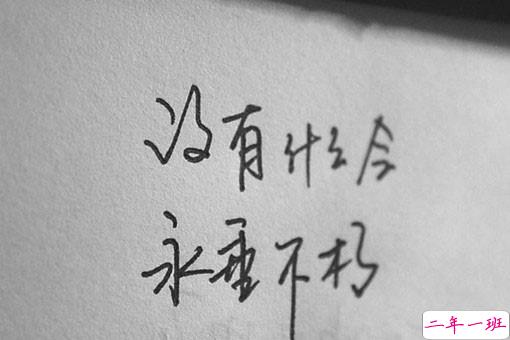 没有什么会
永垂不朽
二年一班